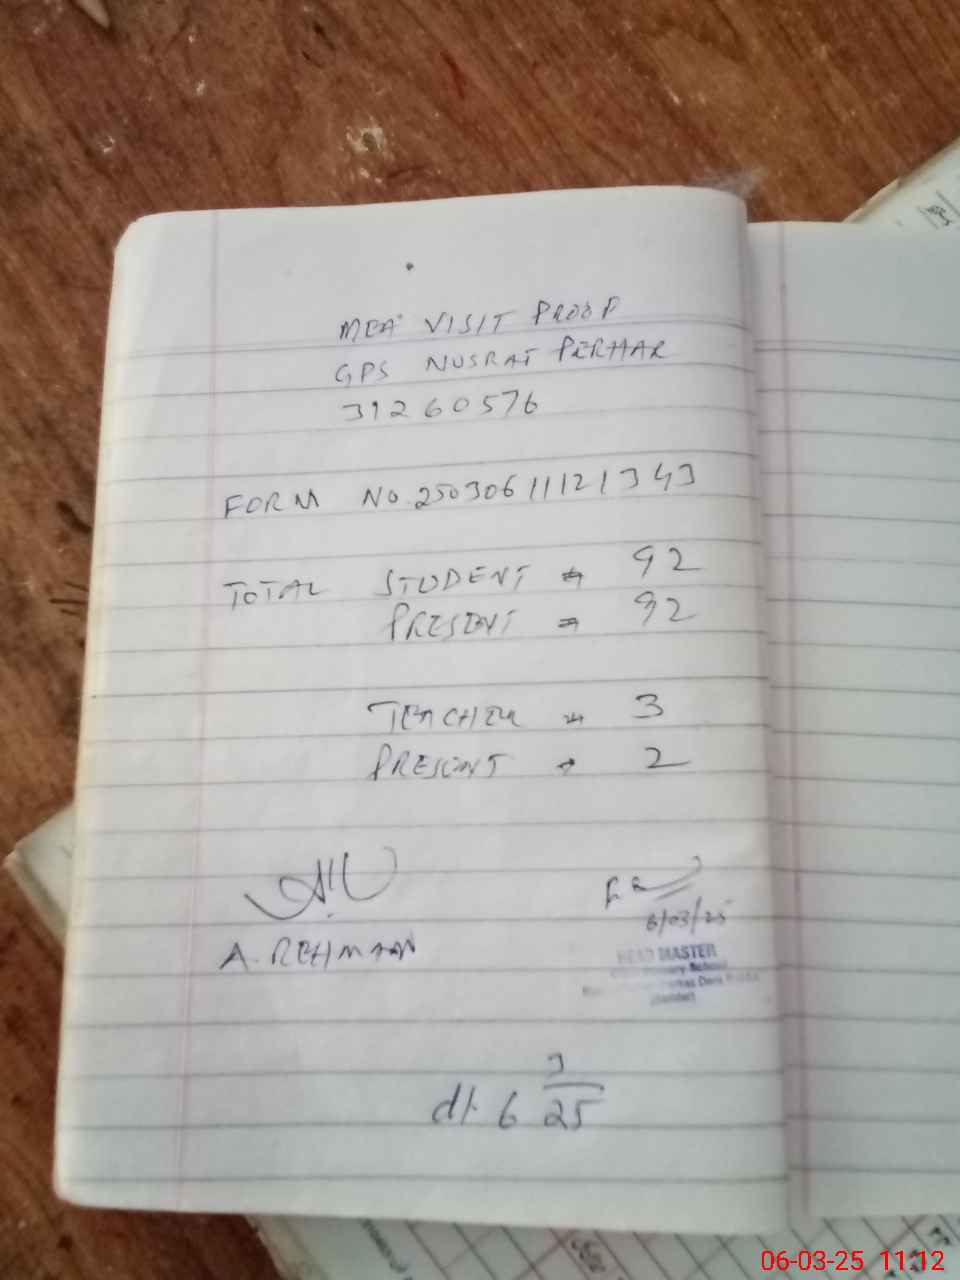 MEA VISIT PROOF
GPS NUSRAT PERHAR
31260576
FORM NO. 25030611121343
TOTAL STUDENT → 92
PRESENT → 92
TEACHER → 3
PRESENT → 2
A. REHMAN
6/03/25
HEAD MASTER
Primary School
dt. 6 3/25
06-03-25 11:12